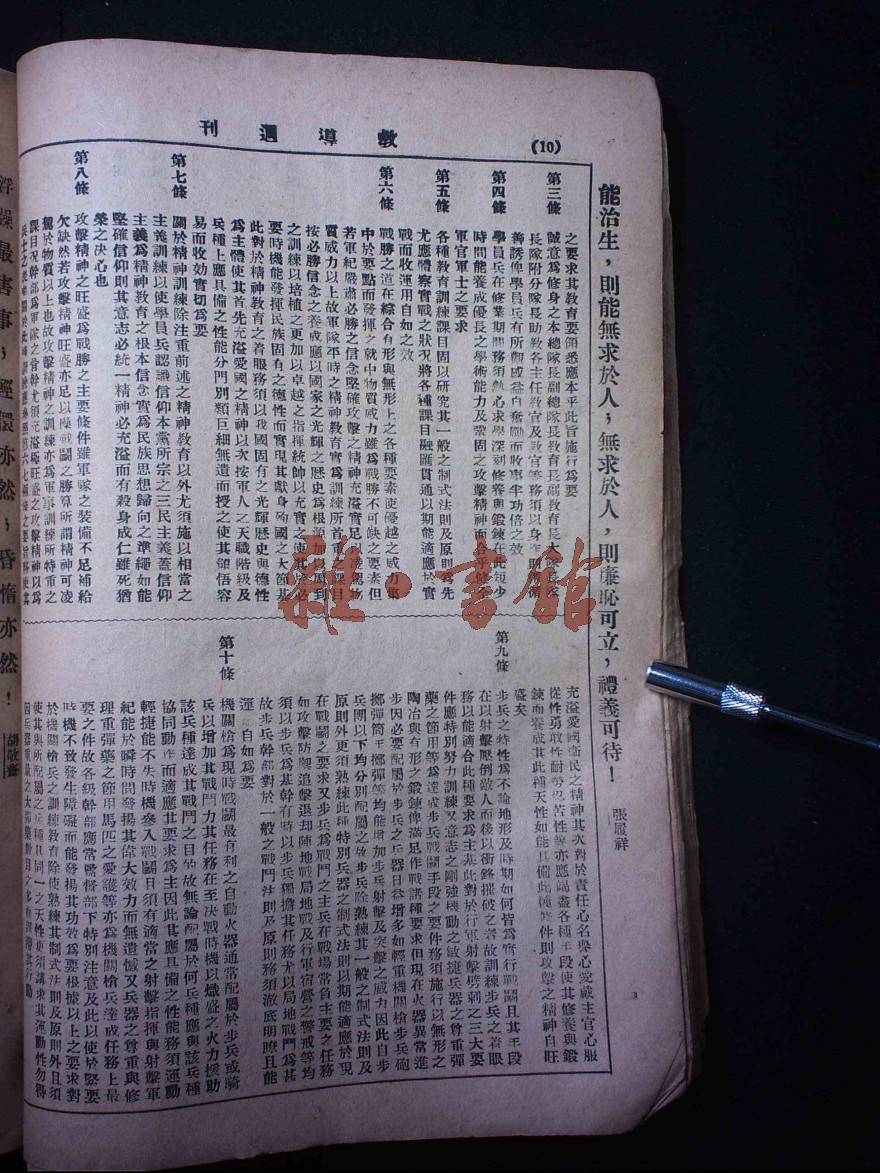 教導週刊
(10)
能治生，則能無求於人，無求於人，則廉恥可立，禮義可待！
張履祥
第三條
之要求其教育要領悉應本乎此旨施行爲要
誠意爲修身之本總隊長副總隊長教育長副教育長大隊長隊
長隊附分隊長助教各主任教官及教官等務須以身作則循循
善誘俾學員兵有所觀感益自奮勵而收事半功倍之效
第四條
學員兵在修業期間務須熱心求學深刻修養與鍛鍊在此短少
時間能養成優良之學術能力及鞏固之攻擊精神而合乎修充
軍官軍士之要求
第五條
各種教育訓練課目固以研究其一般之制式法則及原則爲先
尤應體察實戰之狀况將各種課目融匯貫通以期能適應於實
戰而收運用自如之效
第六條
戰勝之道在綜合有形與無形上之各種要素使優越之威力集
中於要點而發揮之就中物質威力雖爲戰勝不可缺之要素但
若軍紀嚴肅必勝之信念堅確攻擊之精神充溢實足以凌駕物
質威力以上故軍隊平時之精神教育實爲訓練所首重之課目
按必勝信念之養成應以國家之光輝之歷史爲根源加以周到
之訓練以培植之更加以卓越之指揮統帥以充實之使其於必
要時機能發揮民族固有之德性而實現其獻身殉國之大節基
此對於精神教育之着眼務須以我國固有之光輝歷史與德性
爲主體使其首先充溢愛國之精神以次按軍人之天職階級及
兵種上應具備之性能分門別類巨細無遺而授之使其領悟容
易而收効實切爲要
第七條
關於精神訓練除注重前述之精神教育以外尤須施以相當之
主義訓練以使學員兵認識信仰本黨所宗之三民主義蓋信仰
主義爲精神教育之根本信念實爲民族思想歸向之準繩如能
堅確信仰則其意志必統一精神必充溢而有殺身成仁雖死猶
榮之决心也
第八條
攻擊精神之旺盛爲戰勝之主要條件雖軍隊之裝備不足補給
欠缺然若攻擊精神旺盛亦足以操戰鬪之勝算所謂精神可凌
駕於物質以上也故攻擊精神之訓練亦爲軍事訓練所特重之
課目况幹部爲軍隊之骨幹尤須充溢極旺盛之攻擊精神以爲
充溢愛國衛民之精神其次對於責任心名譽心愛戴主官心服
從性勇敢性耐勞堅苦性等亦應竭盡各種手段使其修養與鍛
鍊而養成其此種天性如能具備此種條件則攻擊之精神自旺
盛矣
第九條
步兵之特性爲不論地形及時期如何皆爲實行戰鬪且其手段
在以射擊壓倒敵人而後以衝鋒摧破之者故訓練步兵之着眼
務以能適合此種要求爲主基此對於行軍射擊劈刺之三大要
件應特別努力訓練又意志之剛強機動之敏捷兵器之尊重彈
藥之節用等爲達成步兵戰鬪手段之要件務須施行以無形之
陶冶與有形之鍛鍊俾滿足作戰諸種要求但現在火器異常進
步因必要配屬於步兵之兵器日益增多如輕重機關槍步兵砲
擲彈筒手擲彈等均能增加步兵射擊及突擊之威力因此自步
兵團以下均分別配屬之故步兵除熟練其一般之制式法則及
原則外更須熟練此種特別兵器之制式法則以期能適應於現
在戰鬪之要求又步兵爲戰鬪之主兵在戰場常負主要之任務
如攻擊防禦追擊退却陣地戰局地戰及行軍宿營之警戒等均
須以步兵爲基幹有時以步兵獨擔其任務尤以局地戰鬪爲甚
故步兵幹部對於一般之戰鬪法則及原則務須澈底明瞭且能
運用自如爲要
第十條
機關槍爲現時戰鬪最有利之自動火器通常配屬於步兵或騎
兵以增加其戰鬪力其任務在至决戰時機以熾盛之火力援助
該兵種達成其戰鬪之目的故無論配屬於何兵種應與該兵種
協同動作而適應其要求爲主因此其應具備之性能務須運動
輕捷能不失時機參入戰鬪且須有適當之射擊指揮與射擊軍
紀能於瞬時間發揚其偉大效力而無遺憾又兵器之尊重與修
理重彈藥之節用馬匹之愛護等亦爲機關槍兵達成任務上最
要之件故各級幹部應常督部下特別注意及此以使於緊要
時機不致發生障礙而能發揚其功效爲要根據以上之要求對
於機關槍兵之訓練教育除使熟練其制式法則及原則外且須
使其與所配屬之兵種具同一之天性更須講求其運動性勿得
因兵器重量之大
浮躁最害事，輕儇亦然，昏惰亦然！
胡敬齋
雜·書館